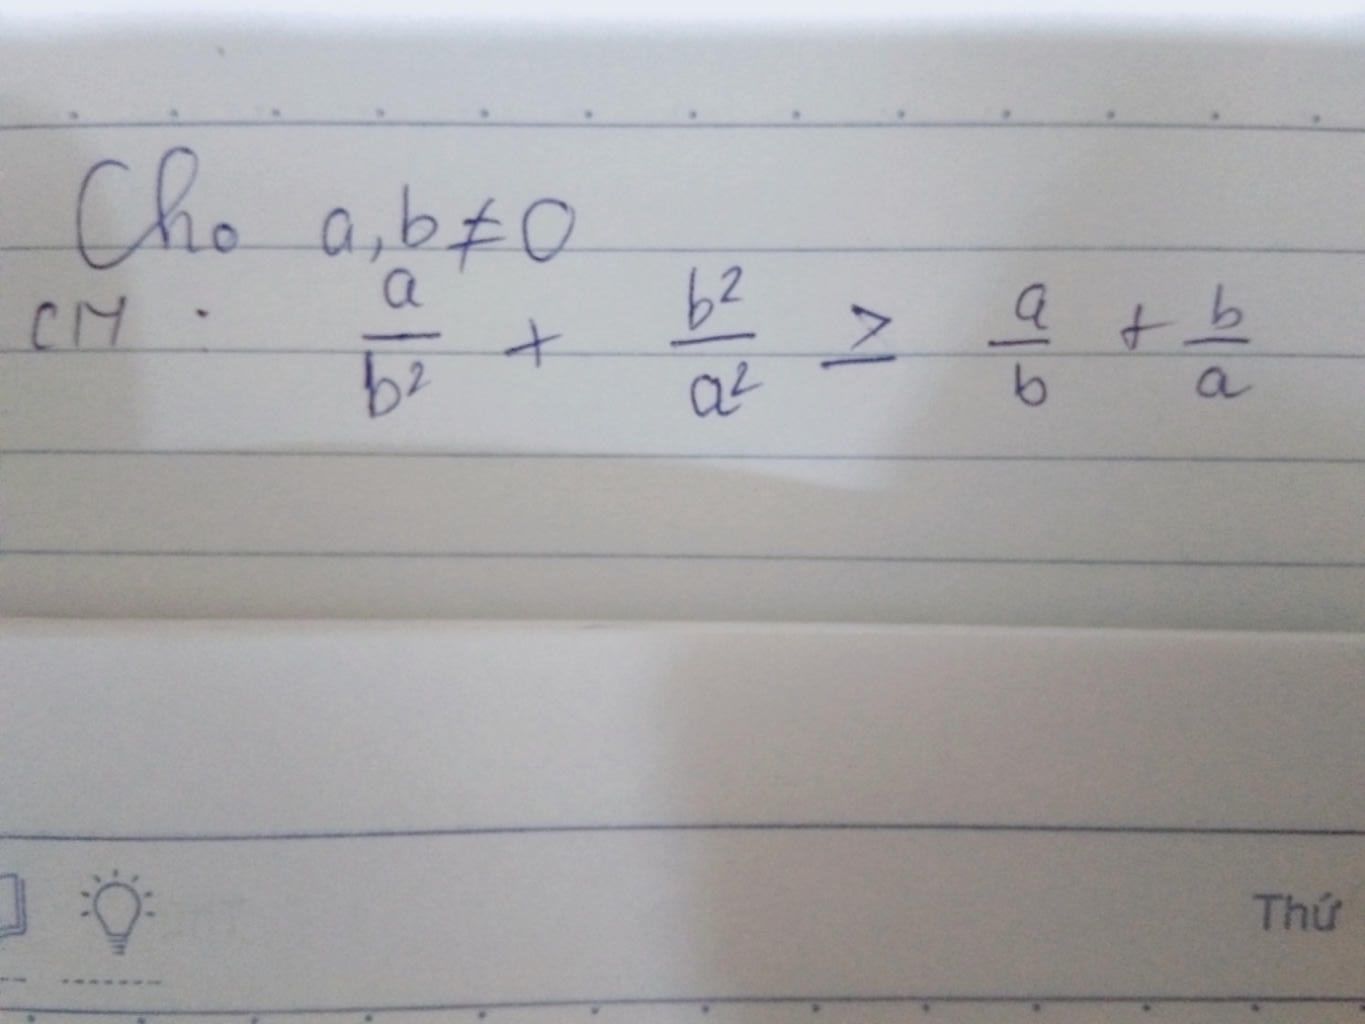 Cho a, b ≠ 0
CM : a/b² + b²/a² ≥ a/b + b/a
Thứ